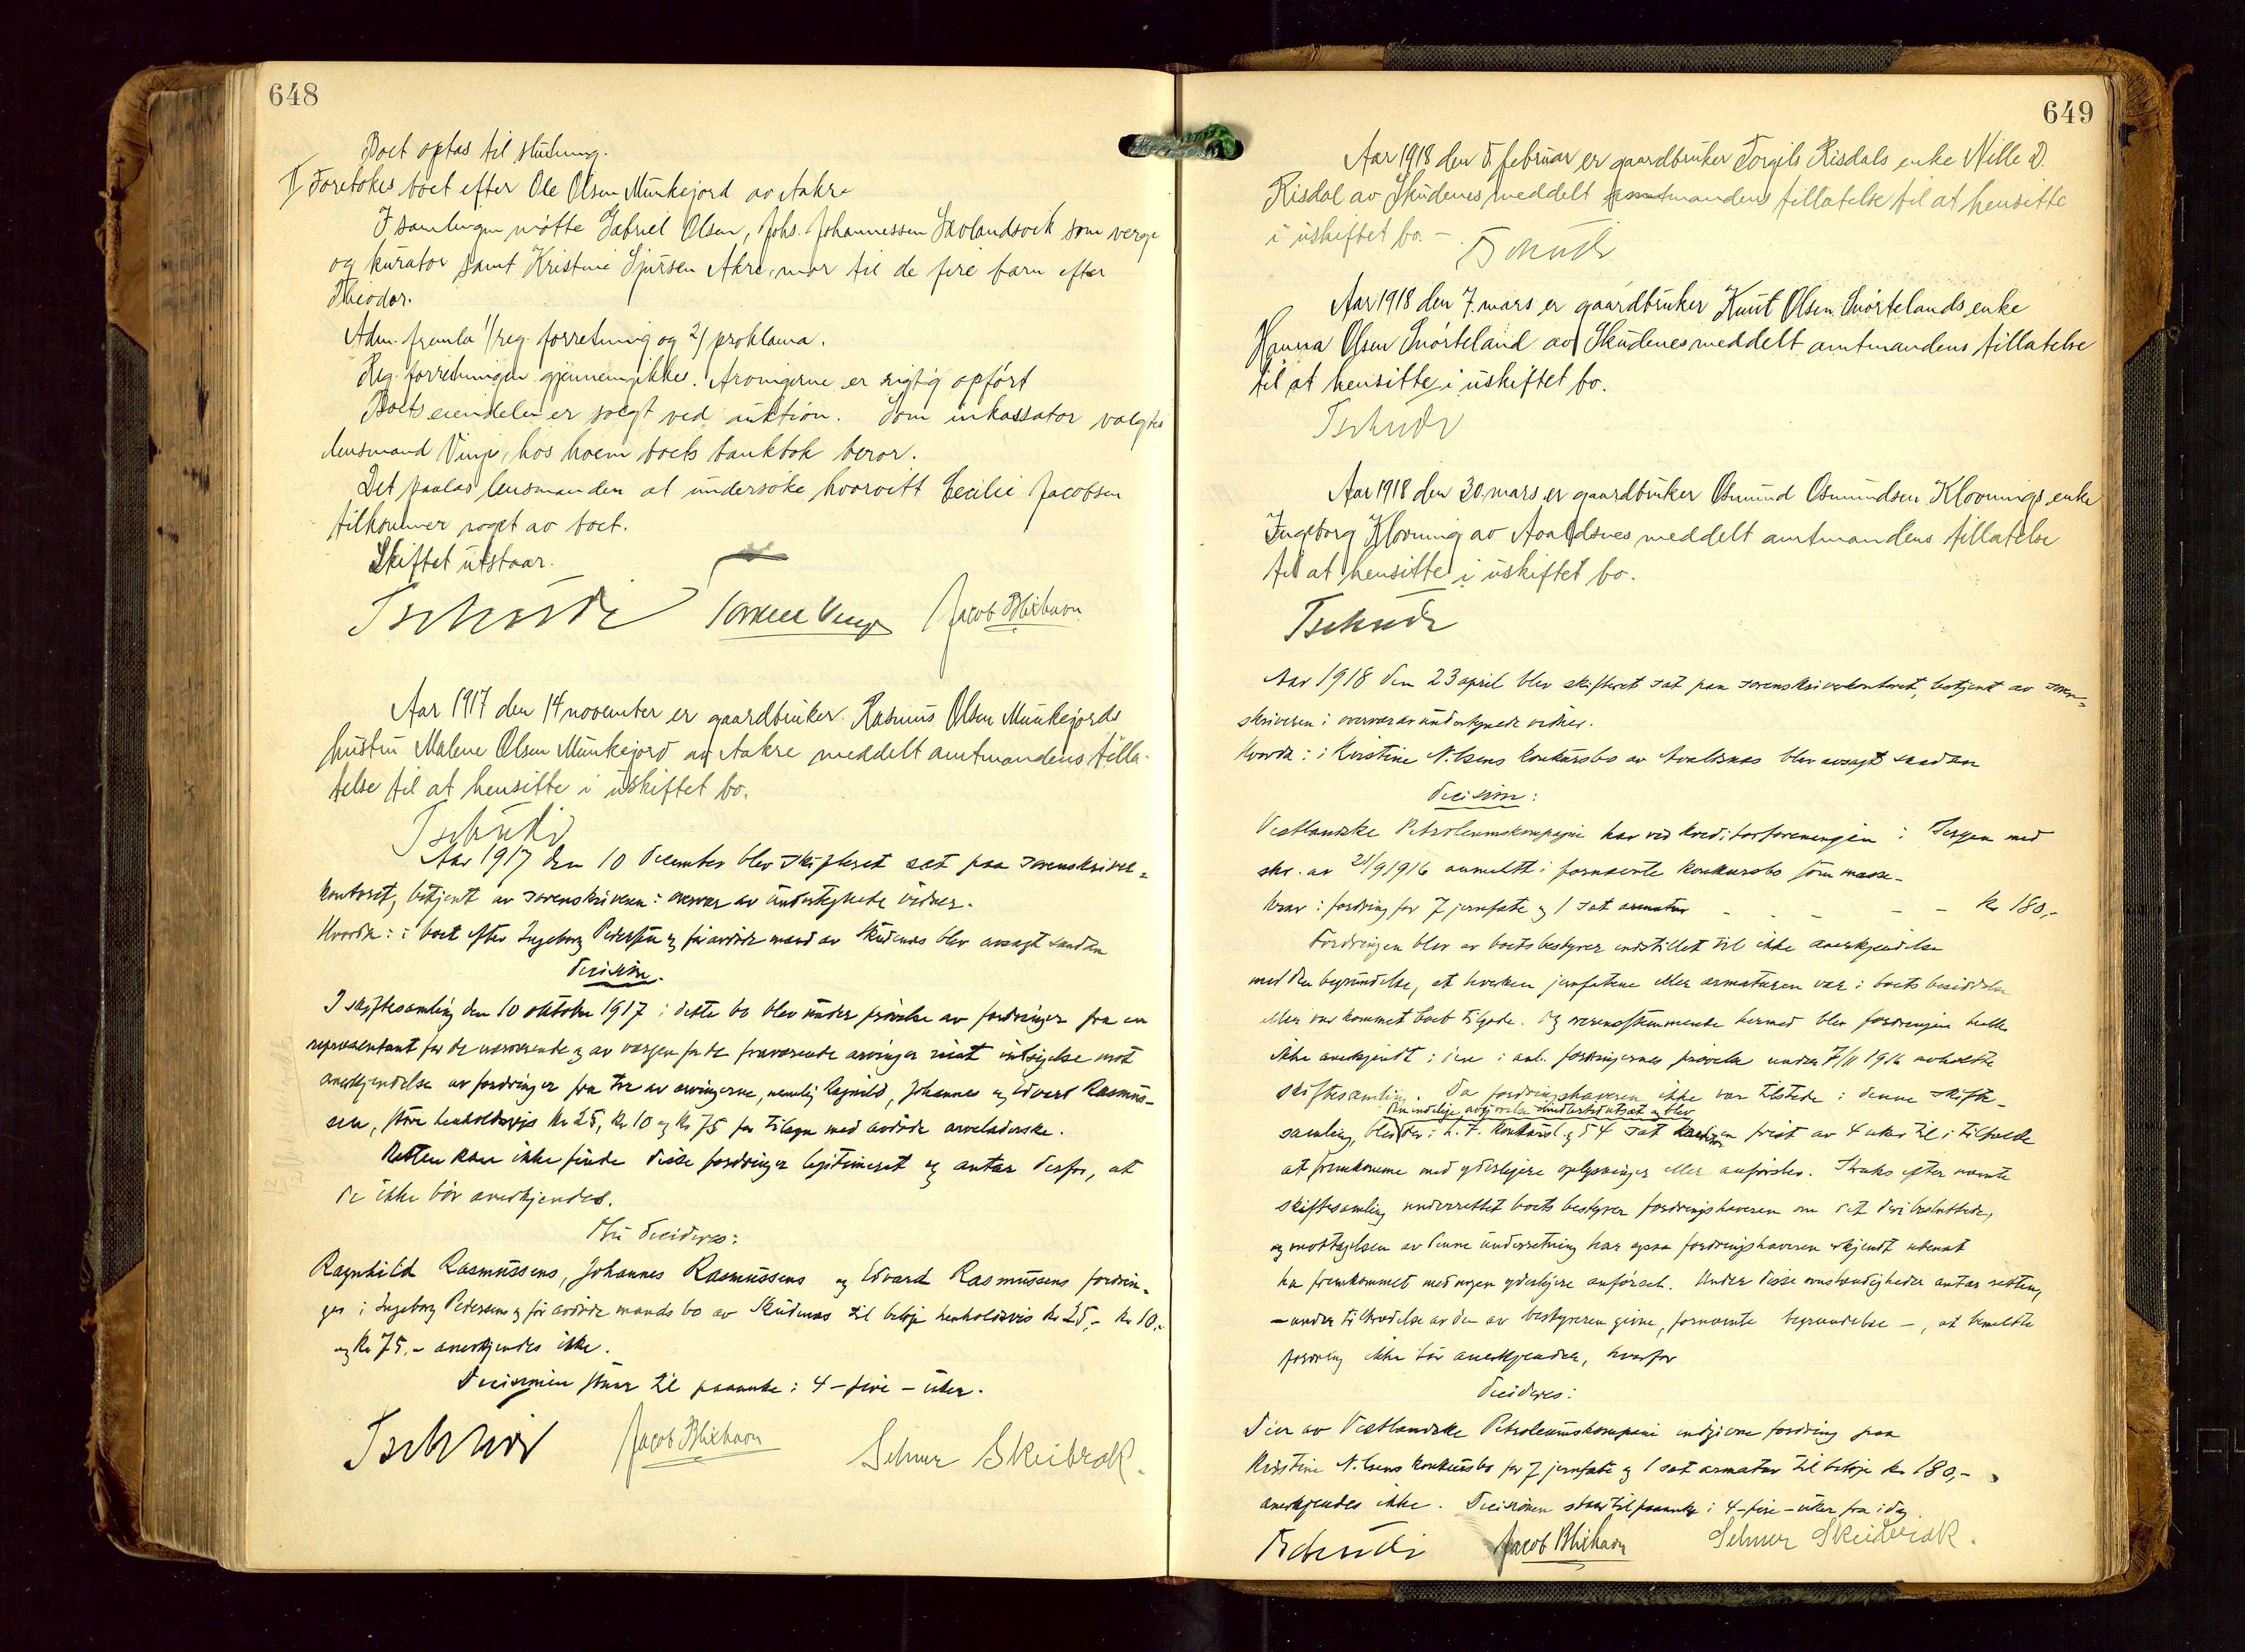 648
Boet optas til slutning.
II Foretokes boet efter Ole Olsen Munkejord av Aakre
I samlingen møtte Gabriel Olsen, Johs. Johannessen Sævlandsvik som verge
og kurator samt Kristine Sjursen Akre, mor til de fire barn efter
Theodor.
Adm. fremla 1/ reg. forretning og 2/ proklama.
Reg. forretningen gjennemgikkes. Arvingerne er rigtig opført
Boets eiendeler er solgt ved auktion. Som inkassator valgtes
lensmand Vinje, hos hvem boets bankbok beror.
Det paalas lensmanden at undersøke hvorvitt Cecilie Jacobsen
tilkommer noget av boet.
Skiftet utstaar.
Tschudi Jacob Blikhavn
Aar 1917 den 14 november er gaardbruker Rasmus Olsen Munkejords
hustru Malene Olsen Munkejord av Aakre meddelt amtmandens tilla-
telse til at hensitte i uskiftet bo.
Tschudi
Aar 1917 den 10 december blev skifteret sat paa sorenskriver-
kontoret, betjent av sorenskriveren i overvær av undertegnede vidner.
Hvorda: i boet efter Ingeborg Pedersen og før avdøde mand av Skudenes blev avsagt saadan
Decision.
I skiftesamling den 10 oktober 1917 i dette bo blev under prøvelse av fordringer fra en
repræsentant for de nærværende og av vergen for de fraværende arvinger reist indsigelse mot
anerkjendelse av fordringer fra tre av arvingerne, nemlig Ragnhild, Johannes og Edvard Rasmus-
sen, store henholdsvis kr 25, kr 10 og kr 75 for tilsyn med avdøde arveladerske.
Retten kan ikke finde disse fordringer legitimeret og antar derfor, at
de ikke bør anerkjendes.
Thi decideres:
Ragnhild Rasmussens, Johannes Rasmussens og Edvard Rasmussens fordrin-
ger i Ingeborg Pedersens og før avdøde mands bo av Skudenes til beløp henholdsvis kr 25,- kr 10,-
og kr 75,- anerkjendes ikke.
Decisionen staar til paaanke i 4 - fire - uker.
Tschudi Jacob Blikhavn Selmer Skeibrok.
649
Aar 1918 den 5. februar er gaardbruker Torgils Risdals enke Nille D.
Risdal av Skudenes meddelt amtmandens tillatelse til at hensitte
i uskiftet bo. -
Tschudi
Aar 1918 den 7. mars er gaardbruker Knut Olsen Snørtelands enke
Hanna Olsen Snørteland av Skudenes meddelt amtmandens tillatelse
til at hensitte i uskiftet bo.
Tschudi
Aar 1918 den 30. mars er gaardbruker Osmund Osmundsen Klovnings enke
Ingeborg Klovning av Avaldsnes meddelt amtmandens tillatelse
til at hensitte i uskiftet bo.
Tschudi
Aar 1918 den 23 april blev skifteret sat paa sorenskriverkontoret, betjent av soren-
skriveren i overvær av undertegnede vidner.
Hvorda: i Kristine Nilsens konkursbo av Avaldsnes blev avsagt saadan
Decision:
Vestlandske Petroleumskompagni har ved kreditorforeningen i Bergen med
skr. av 20/9 1916 anmeldt i fornævnte konkursbo som masse-
krav: fordring for 7 jernfate og 1 sat armatur - - - - - kr 180,-
Fordringen blev av boets bestyrer indstillet til ikke anerkjendelse
med den begrundelse, at hverken jernfatene eller armaturen var i boets besiddelse
eller var kommet boet tilgode. Og overensstemmende hermed blev fordringen heller
ikke anerkjendt i den i anl. fordringernes prøvelse under 7/11 1916 avholdte
skiftesamling. Da fordringshaveren ikke var tilstede i denne skifte-
den endelige avgjørelse utsat og blev
samling, blev der i h. t. konkursl. § 54 sat en frist av 4 uker til i tilfælde
at fremkomme med yderligere oplysninger eller anførsler. Straks efter nævnte
skiftesamling underrettet boets bestyrer fordringshaveren om det deri besluttede,
og mottagelsen av denne underretning har ogsaa fordringshaveren erkjendt uten at
ha fremkommet med nogen yderligere anførsel. Under disse omstændigheder antar retten,
- under tiltrædelse av den av bestyreren givne, fornævnte begrundelse -, at bemeldte
fordring ikke bør anerkjendes, hvorfor
Decideres:
Den av Vestlandske Petroleumskompani indgivne fordring paa
Kristine Nilsens konkursbo for 7 jernfate og 1 sat armatur til beløp kr 180,-
anerkjendes ikke. Decisionen staar til paaanke i 4 - fire - uker fra idag.
Tschudi Jacob Blikhavn Selmer Skeibrok.